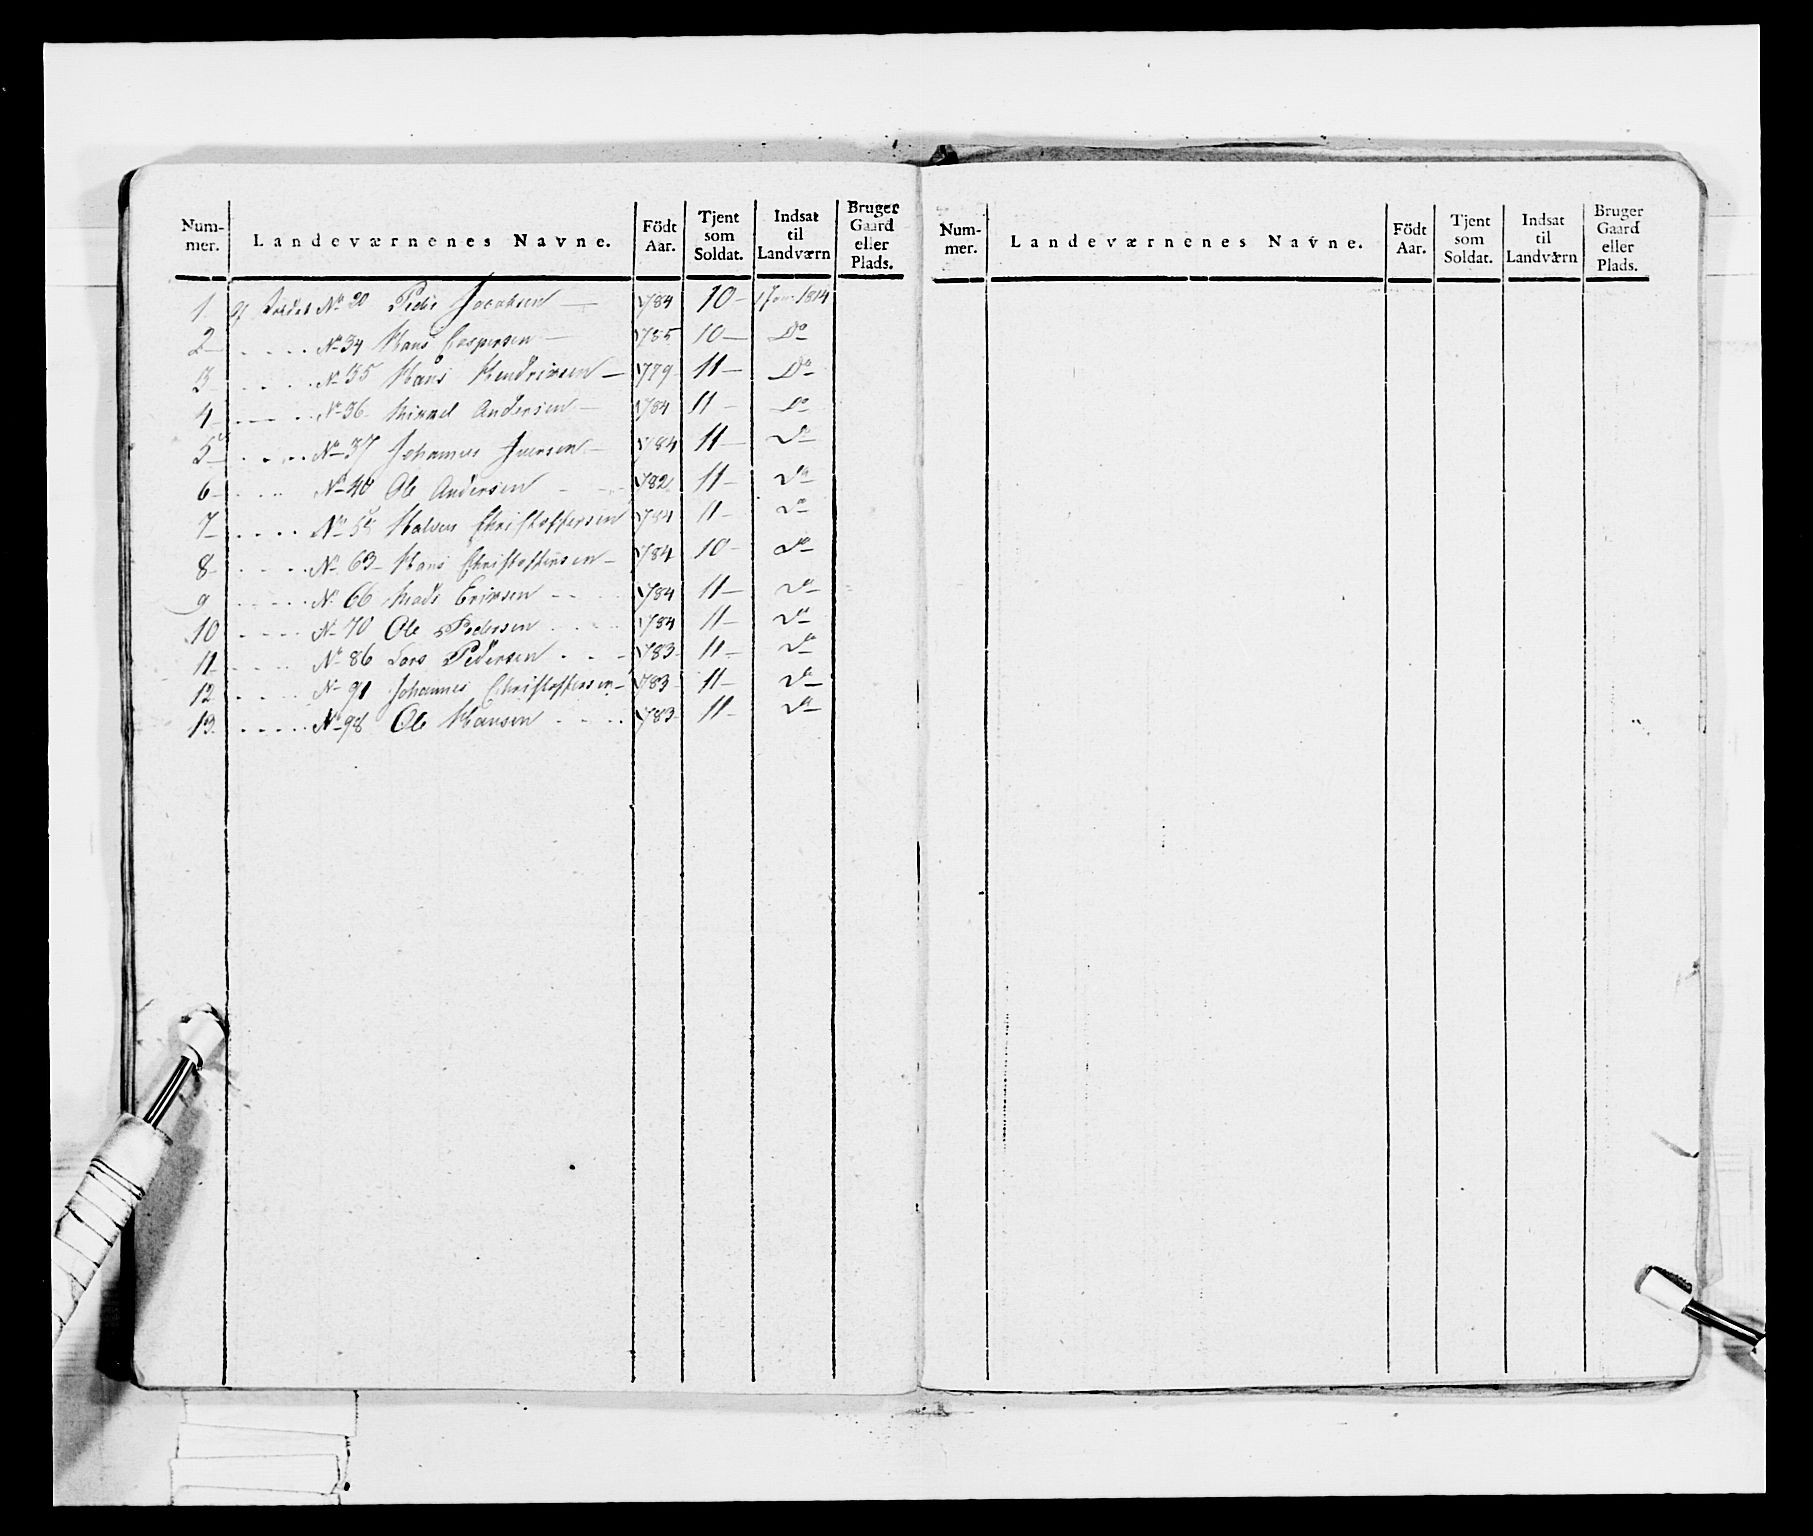 Num-mer. Landeværnenes Navne. Födt Aar. Tjent som Soldat. Indsat til Landværn Bruger Gaard eller Plads.
1 No 20 Peder Jacobsen 1784 10 1 Jan 1814
2 No 34 Hans Caspersen 1785 10 Do
3 No 35 Hans Hendrixen 1779 11 Do
4 No 36 Mickel Andersen 1784 11 Do
5 No 37 Johannes Iversen 1784 11 Do
6 No 40 Ole Andersen 1782 11 Do
7 No 55 Halvor Christoffersen 1784 11 Do
8 No 63 Hans Christoffersen 1784 10 Do
9 No 66 Mads Erixsen 1784 11 Do
10 No 70 Ole Pedersen 1784 11 Do
11 No 86 Lars Pedersen 1783 11 Do
12 No 91 Johannes Christoffersen 1783 11 Do
13 No 98 Ole Hansen 1783 11 Do
Num-mer. Landeværnenes Navne. Födt Aar. Tjent som Soldat. Indsat til Landværn Bruger Gaard eller Plads.